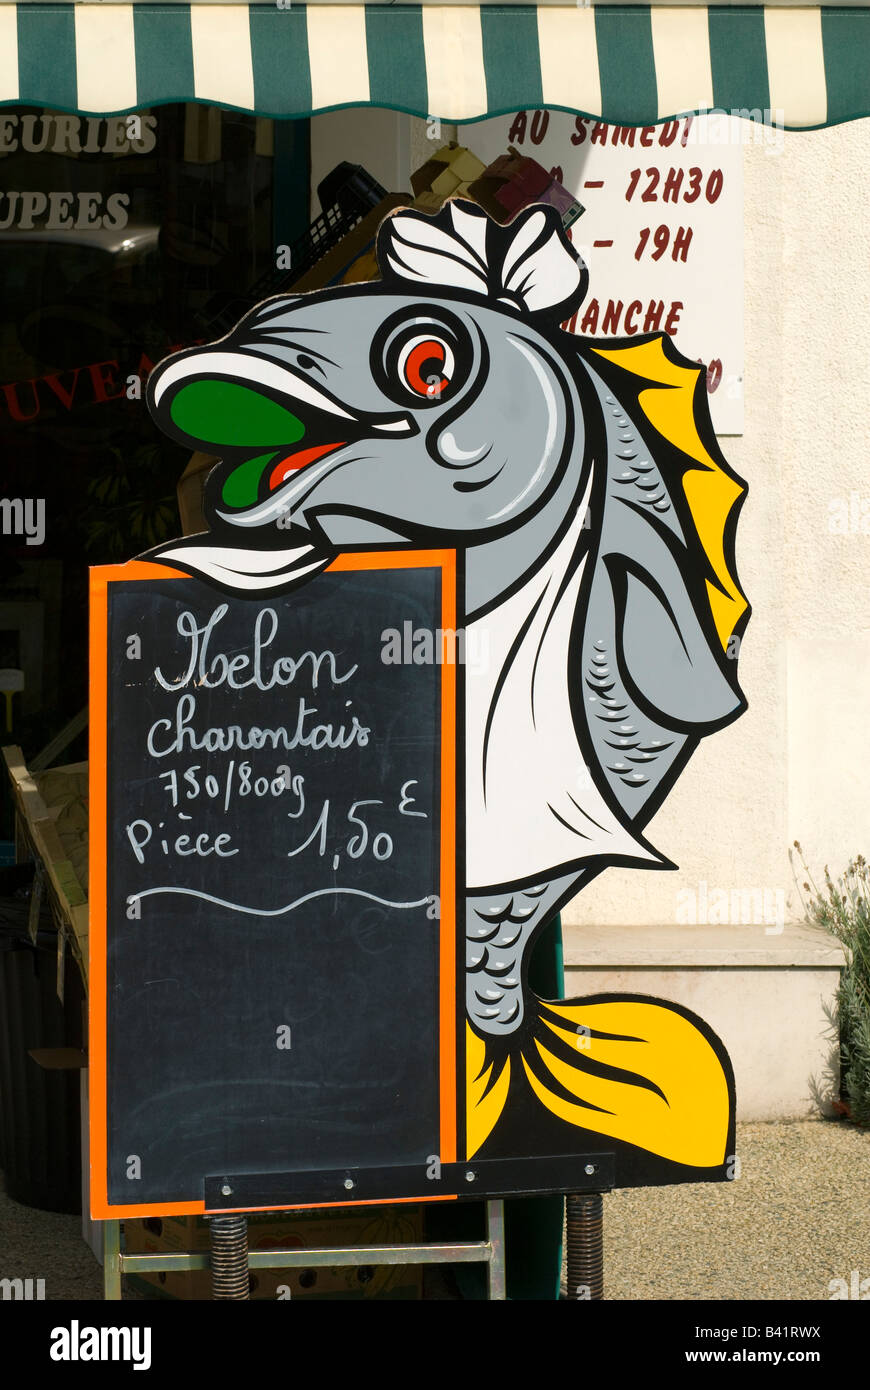 EURIES
UPEES
AU SAMEDI
- 12H30
- 19H
MANCHE
OUVEAU
Melon
charentais
750/800g
Pièce 1,50 €
alamy
Image ID: B41RWX
www.alamy.com